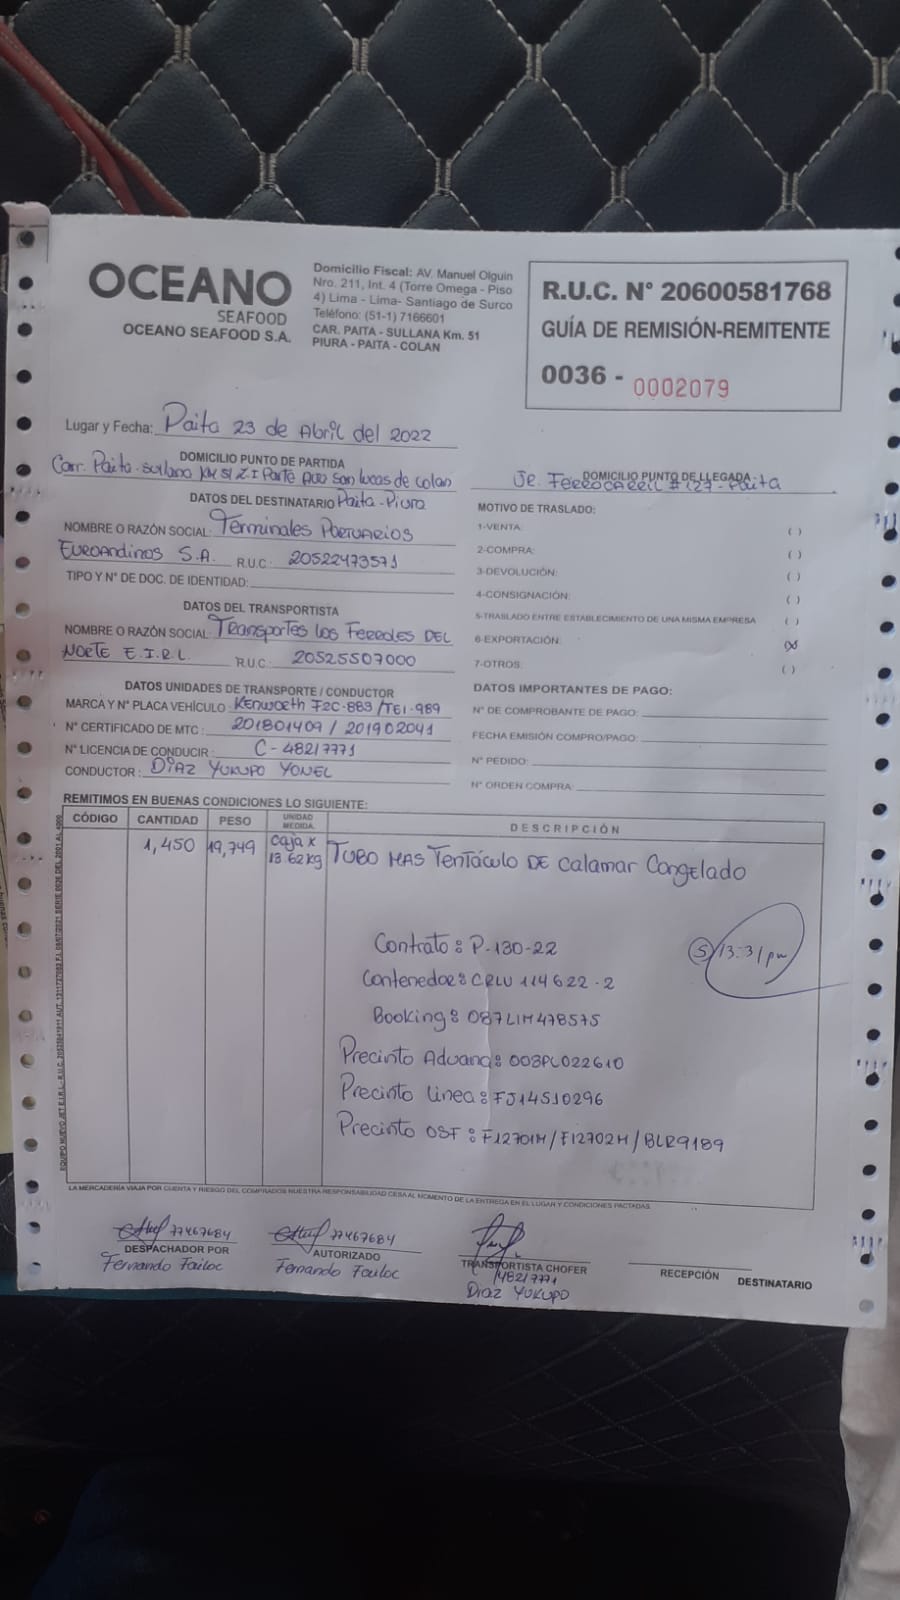 OCEANO
SEAFOOD
OCEANO SEAFOOD S.A.
Domicilio Fiscal: AV. Manuel Olguin
Nro. 211, Int. 4 (Torre Omega - Piso
4) Lima - Lima- Santiago de Surco
Teléfono: (51-1) 7166601
CAR. PAITA - SULLANA Km. 51
PIURA - PAITA - COLAN
R.U.C. N° 20600581768
GUÍA DE REMISIÓN-REMITENTE
0036 - 0002079
Lugar y Fecha: Paita 23 de Abril del 2022
DOMICILIO PUNTO DE PARTIDA
Carr. Paita-Sullana KM 51 Z.I Parte San Lucas de Colan
Paita-Piura
DOMICILIO PUNTO DE LLEGADA
Jr. Ferrocarril # 127-Paita
DATOS DEL DESTINATARIO
NOMBRE O RAZÓN SOCIAL: Terminales Portuarios
Euroandinos S.A. R.U.C.: 20522473571
TIPO Y N° DE DOC. DE IDENTIDAD:
DATOS DEL TRANSPORTISTA
NOMBRE O RAZÓN SOCIAL: Transportes los Ferroles DEL
NORTE E.I.R.L. R.U.C.: 20525507000
DATOS UNIDADES DE TRANSPORTE / CONDUCTOR
MARCA Y N° PLACA VEHÍCULO: Kenworth F2C-883/TEI-989
N° CERTIFICADO DE MTC.: 201801409 / 201902041
N° LICENCIA DE CONDUCIR: C-48217771
CONDUCTOR: DÍAZ YUKUPO YONEL
MOTIVO DE TRASLADO:
1-VENTA: ( )
2-COMPRA: ( )
3-DEVOLUCIÓN: ( )
4-CONSIGNACIÓN: ( )
5-TRASLADO ENTRE ESTABLECIMIENTO DE UNA MISMA EMPRESA ( )
6-EXPORTACIÓN: (X)
7-OTROS: ( )
DATOS IMPORTANTES DE PAGO:
N° DE COMPROBANTE DE PAGO:
FECHA EMISIÓN COMPRO/PAGO:
N° PEDIDO:
N° ORDEN COMPRA:
REMITIMOS EN BUENAS CONDICIONES LO SIGUIENTE:
CÓDIGO CANTIDAD PESO UNIDAD MEDIDA. DESCRIPCIÓN
1,450 19,749 caja x 13.62kg TUBO MAS Tentáculo DE Calamar Congelado
Contrato: P-130-22
Contenedor: CRLU 114622-2
Booking: 087LIM478575
Precinto Aduana: 003PL022610
Precinto Linea: FJ14510296
Precinto OSF: F12701M/F12702M/BLR9189
S 13:31pm
LA MERCADERÍA VIAJA POR CUENTA Y RIESGO DEL COMPRADOS NUESTRA RESPONSABILIDAD CESA AL MOMENTO DE LA ENTREGA EN EL LUGAR Y CONDICIONES PACTADAS.
77467684
DESPACHADOR POR
Fernando Failoc
77467684
AUTORIZADO
Fernando Failoc
TRANSPORTISTA CHOFER
48217771
Diaz YUKUPO
RECEPCIÓN DESTINATARIO